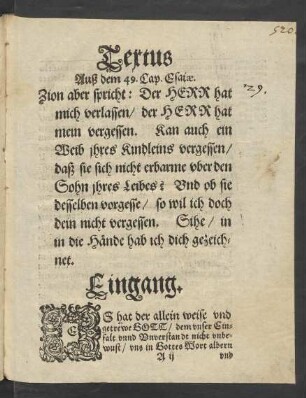 520.
Textus
Auß dem 49. Cap. Esaiæ.
29.
Zion aber spricht: Der HERR hat
mich verlassen/ der HERR hat
mein vergessen. Kan auch ein
Weib jhres Kindleins vergessen/
daß sie sich nicht erbarme vber den
Sohn jhres Leibes? Vnd ob sie
desselben vergesse/ so wil ich doch
dein nicht vergessen. Sihe/ in
in die Hände hab ich dich gezeich-
net.
Eingang.
ES hat der allein weise vnd
getrëwe GOTT/ dem vnser Ein-
falt vnnd Vnverstande nicht vnbe-
wust/ vns in Gottes Wort albern
A ij
vnd